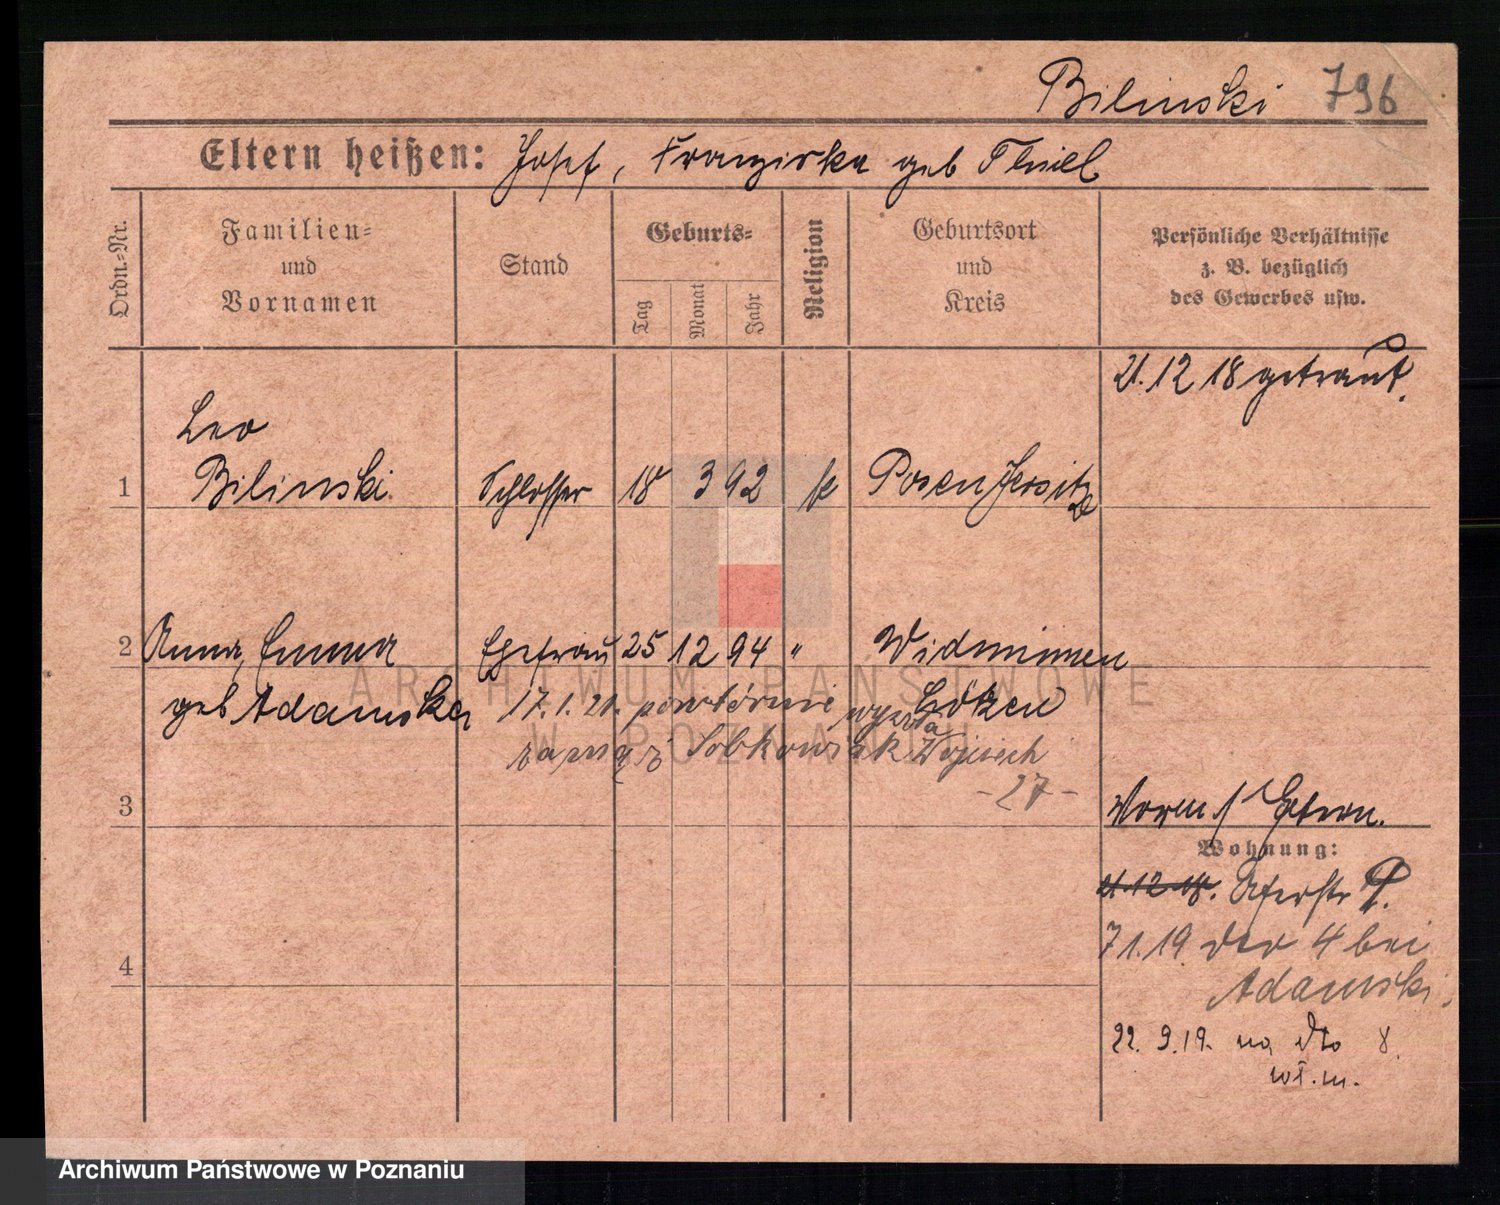 Bilinski 796
Eltern heißen: Josef, Franziska geb Thiel
Ordn.=Nr.
Familien=
und
Vornamen
Stand
Geburts=
Tag
Monat
Jahr
Religion
Geburtsort
und
Kreis
Persönliche Verhältnisse
z. B. bezüglich
des Gewerbes usw.
21.12 18 getraut.
Leo
1 Bilinski Schlosser 18 3 92 k Posen Jersitz
2 Anna, Emma Ehefrau 25 12 94 " Widminnen
geb Adamska Lötzen
17.1.21. powtórnie wyszła
za mąż z Sobkowiak Wojciech
-27-
3
Wohnung:
21.12.18.
7 1.19 dto 4 bei
4
Adamski.
22. 9.19. na dto 8.
wł.m.
ARCHIWUM PAŃSTWOWE
W POZNANIU
Archiwum Państwowe w Poznaniu